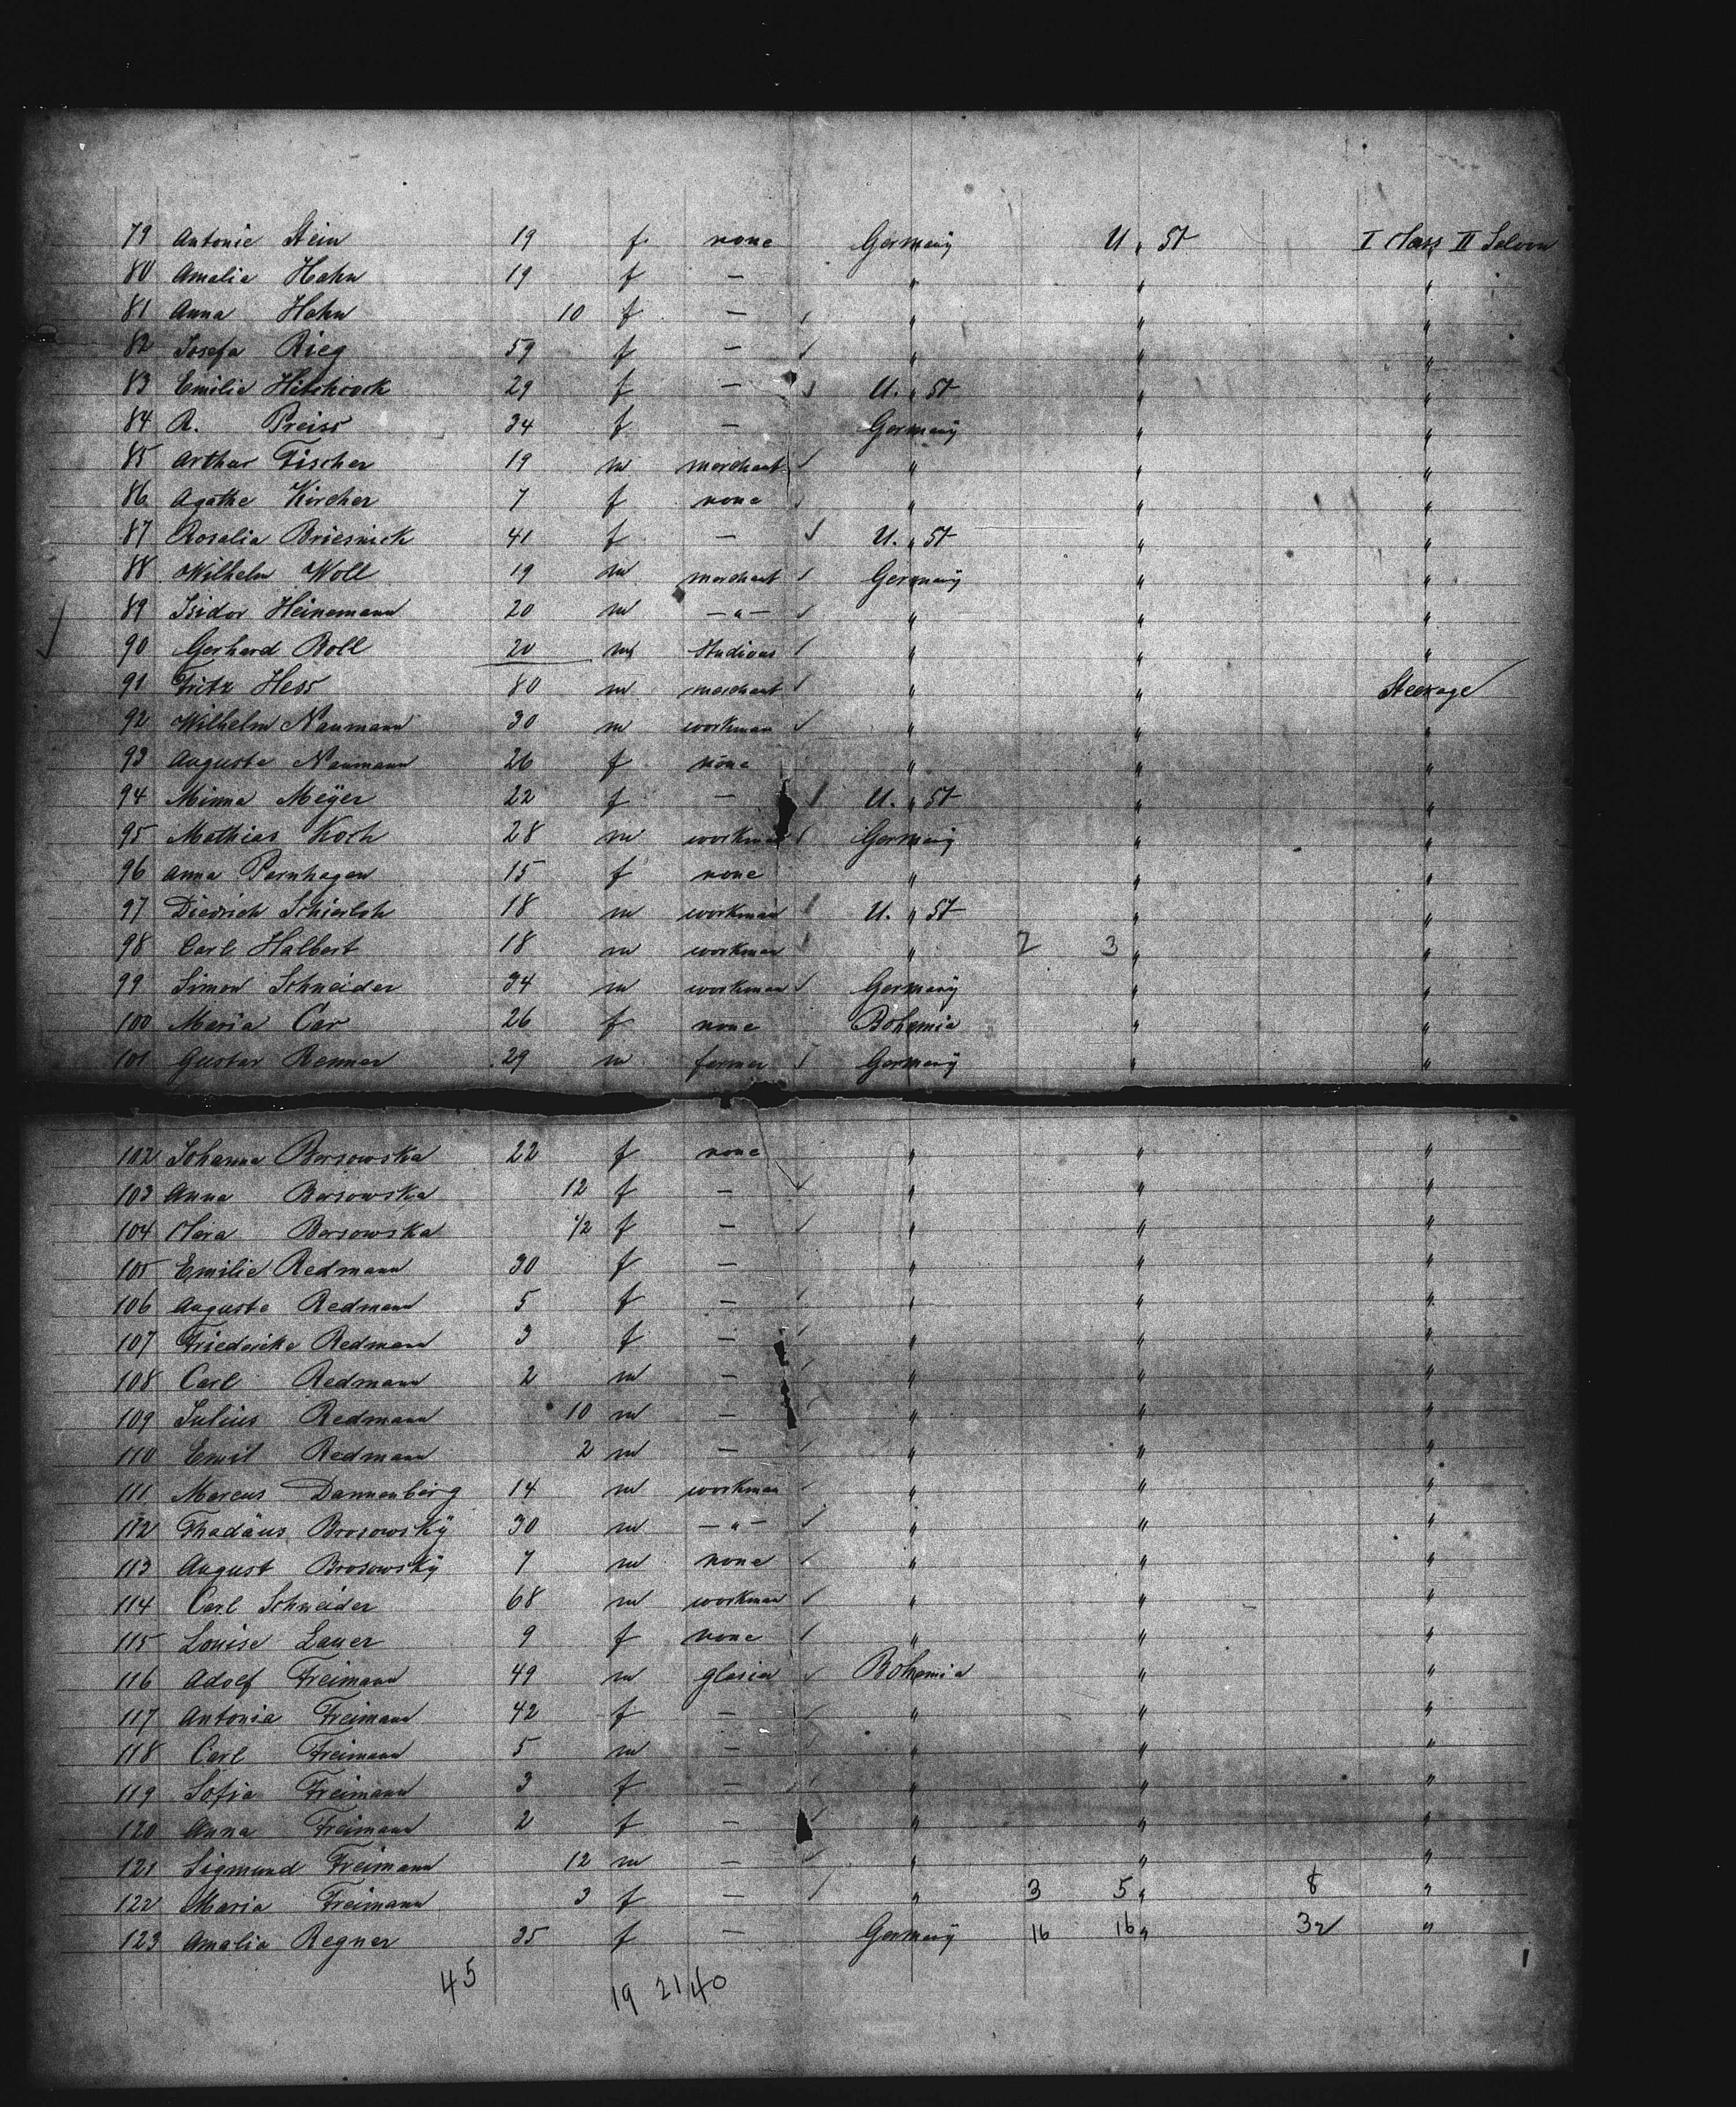 79 Antonie Stein 19 f. none Germany U. St I Class II Saloon
80 Amalia Hahn 19 f — " " "
81 Anna Hahn 10 f — " " "
82 Josefa Rieg 59 f — " " "
83 Emilie Hitchcock 29 f — U. " St " "
84 R. Preiss 34 f — Germany " "
85 Arthur Fischer 19 m merchant " " "
86 Agathe Kircher 7 f none " " "
87 Rosalia Briesnick 41 f — U. " St " "
88 Wilhelm Woll 19 m merchant Germany " "
89 Isidor Heinemann 20 m — " — " " "
90 Gerhard Boll 20 m " " "
91 Fritz Hess 80 m merchant " " Steerage
92 Wilhelm Naumann 30 m workman " " "
93 Auguste Naumann 26 f none " " "
94 Minna Meÿer 22 f — U. " St " "
95 Mathias Koch 28 m workman Germany " "
96 Anna Parnhagen 15 f none " " "
97 Diedrich Schierloh 18 m workman U. " St " "
98 Carl Halbert 18 m workman " 2 3 " "
99 Simon Schneider 34 m workman Germany " "
100 Maria Car 26 f none Bohemia " "
101 Gustav Renner 29 m farmer Germany " "
102 Johanna Borsowska 22 f none " " "
103 Anna Borsowska 12 f — " " "
104 Clara Borsowska 1/2 f — " " "
105 Emilie Redmann 30 f — " " "
106 Auguste Redmann 5 f — " " "
107 Friederike Redmann 3 f — " " "
108 Carl Redmann 2 m — " " "
109 Julius Redmann 10 m — " " "
110 Emil Redmann 2 m — " " "
111 Marcus Dannenberg 14 m workman " " "
112 Thadäus Brosowskÿ 30 m — " — " " "
113 August Brosowskÿ 7 m none " " "
114 Carl Schneider 68 m workman " " "
115 Louise Lauer 9 f none " " "
116 Adolf Freimann 49 m glasier Bohemia " "
117 Antonia Freimann 42 f — " " "
118 Carl Freimann 5 m — " " "
119 Sofia Freimann 3 f — " " "
120 Anna Freimann 2 f — " " "
121 Sigmund Freimann 12 m — " " "
122 Maria Freimann 3 f — " 3 5 " 8 "
123 Amalia Regner 35 f — Germany 16 16 " 32 "
45 19 21/40